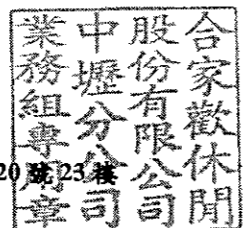 合家歡休閒
股份有限公司
中壢分公司
業務組專用章
20 號 23 樓